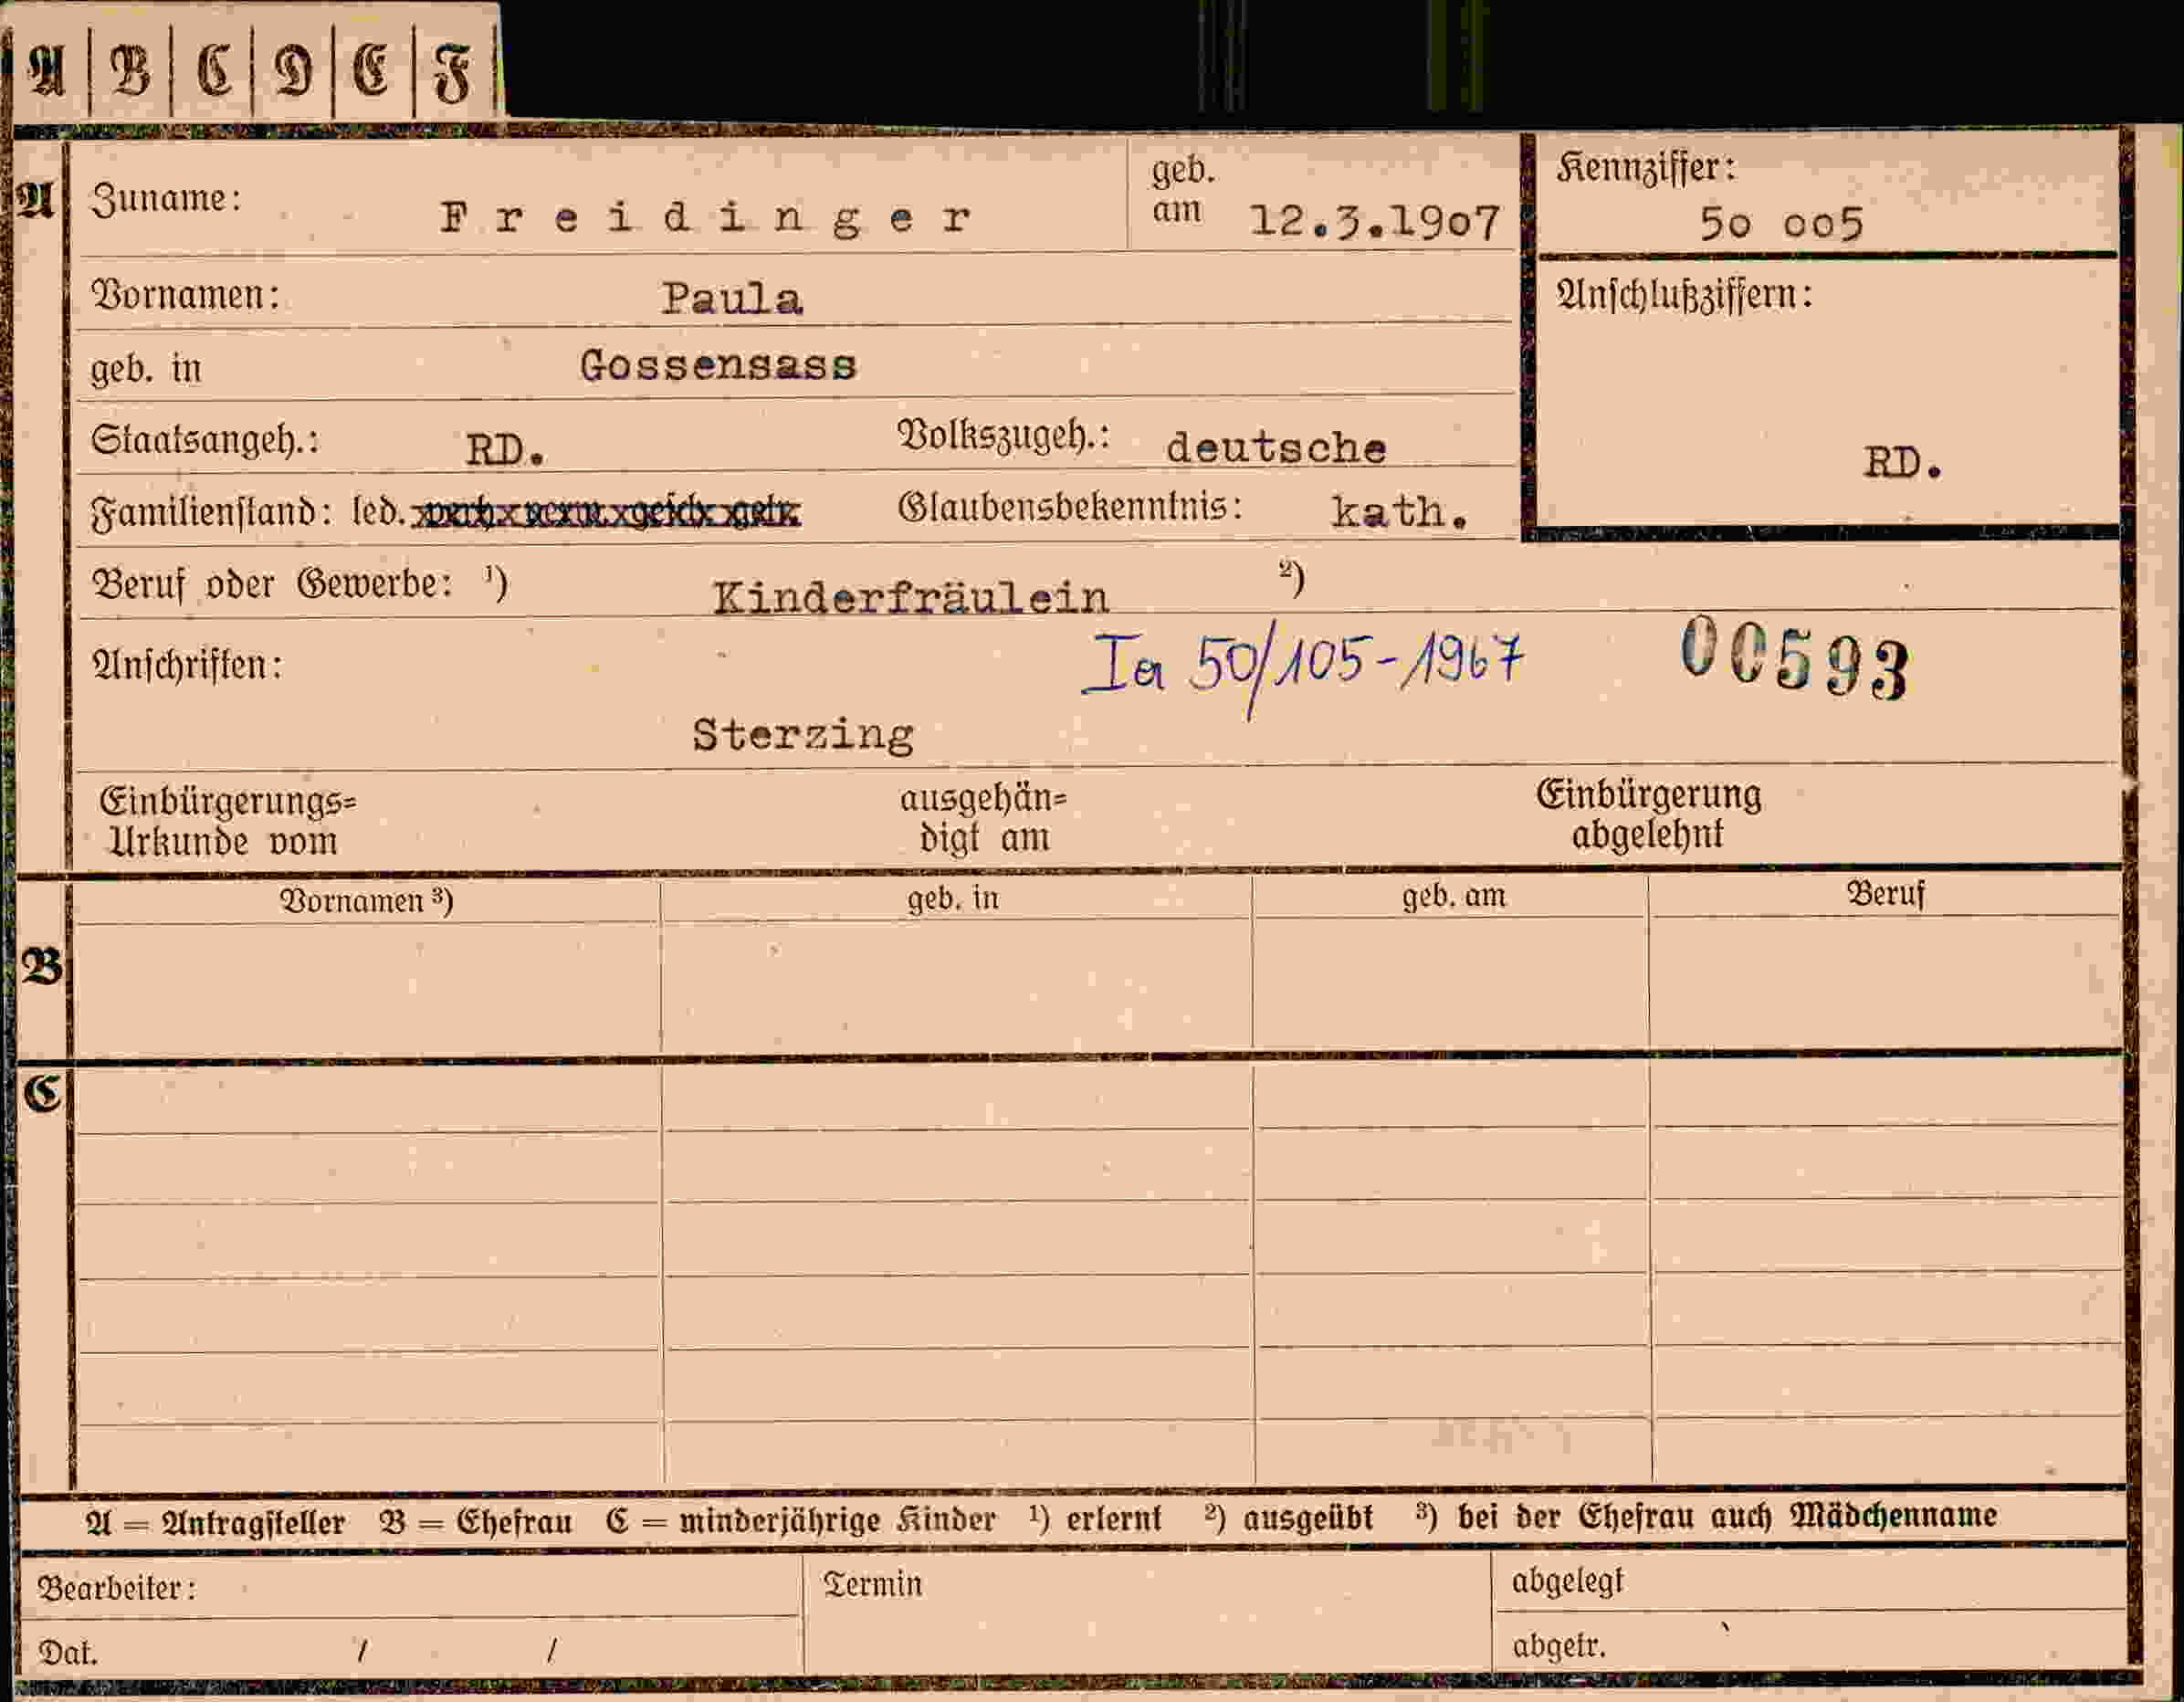 A B C D E F
A Zuname: Freidinger geb. am 12.3.1907 Kennziffer: 50 005
Vornamen: Paula Anschlußziffern:
geb. in Gossensass
Staatsangeh.: RD. Volkszugeh.: deutsche RD.
Familienstand: led. Glaubensbekenntnis: kath.
Beruf oder Gewerbe: ¹) Kinderfräulein ²)
Anschriften: Ia 50/105-1967 00593
Sterzing
Einbürgerungs= ausgehän= Einbürgerung
Urkunde vom digt am abgelehnt
Vornamen ³) geb. in geb. am Beruf
B
C
A = Antragsteller B = Ehefrau C = minderjährige Kinder ¹) erlernt ²) ausgeübt ³) bei der Ehefrau auch Mädchenname
Bearbeiter: Termin abgelegt
Dat. / / abgetr.